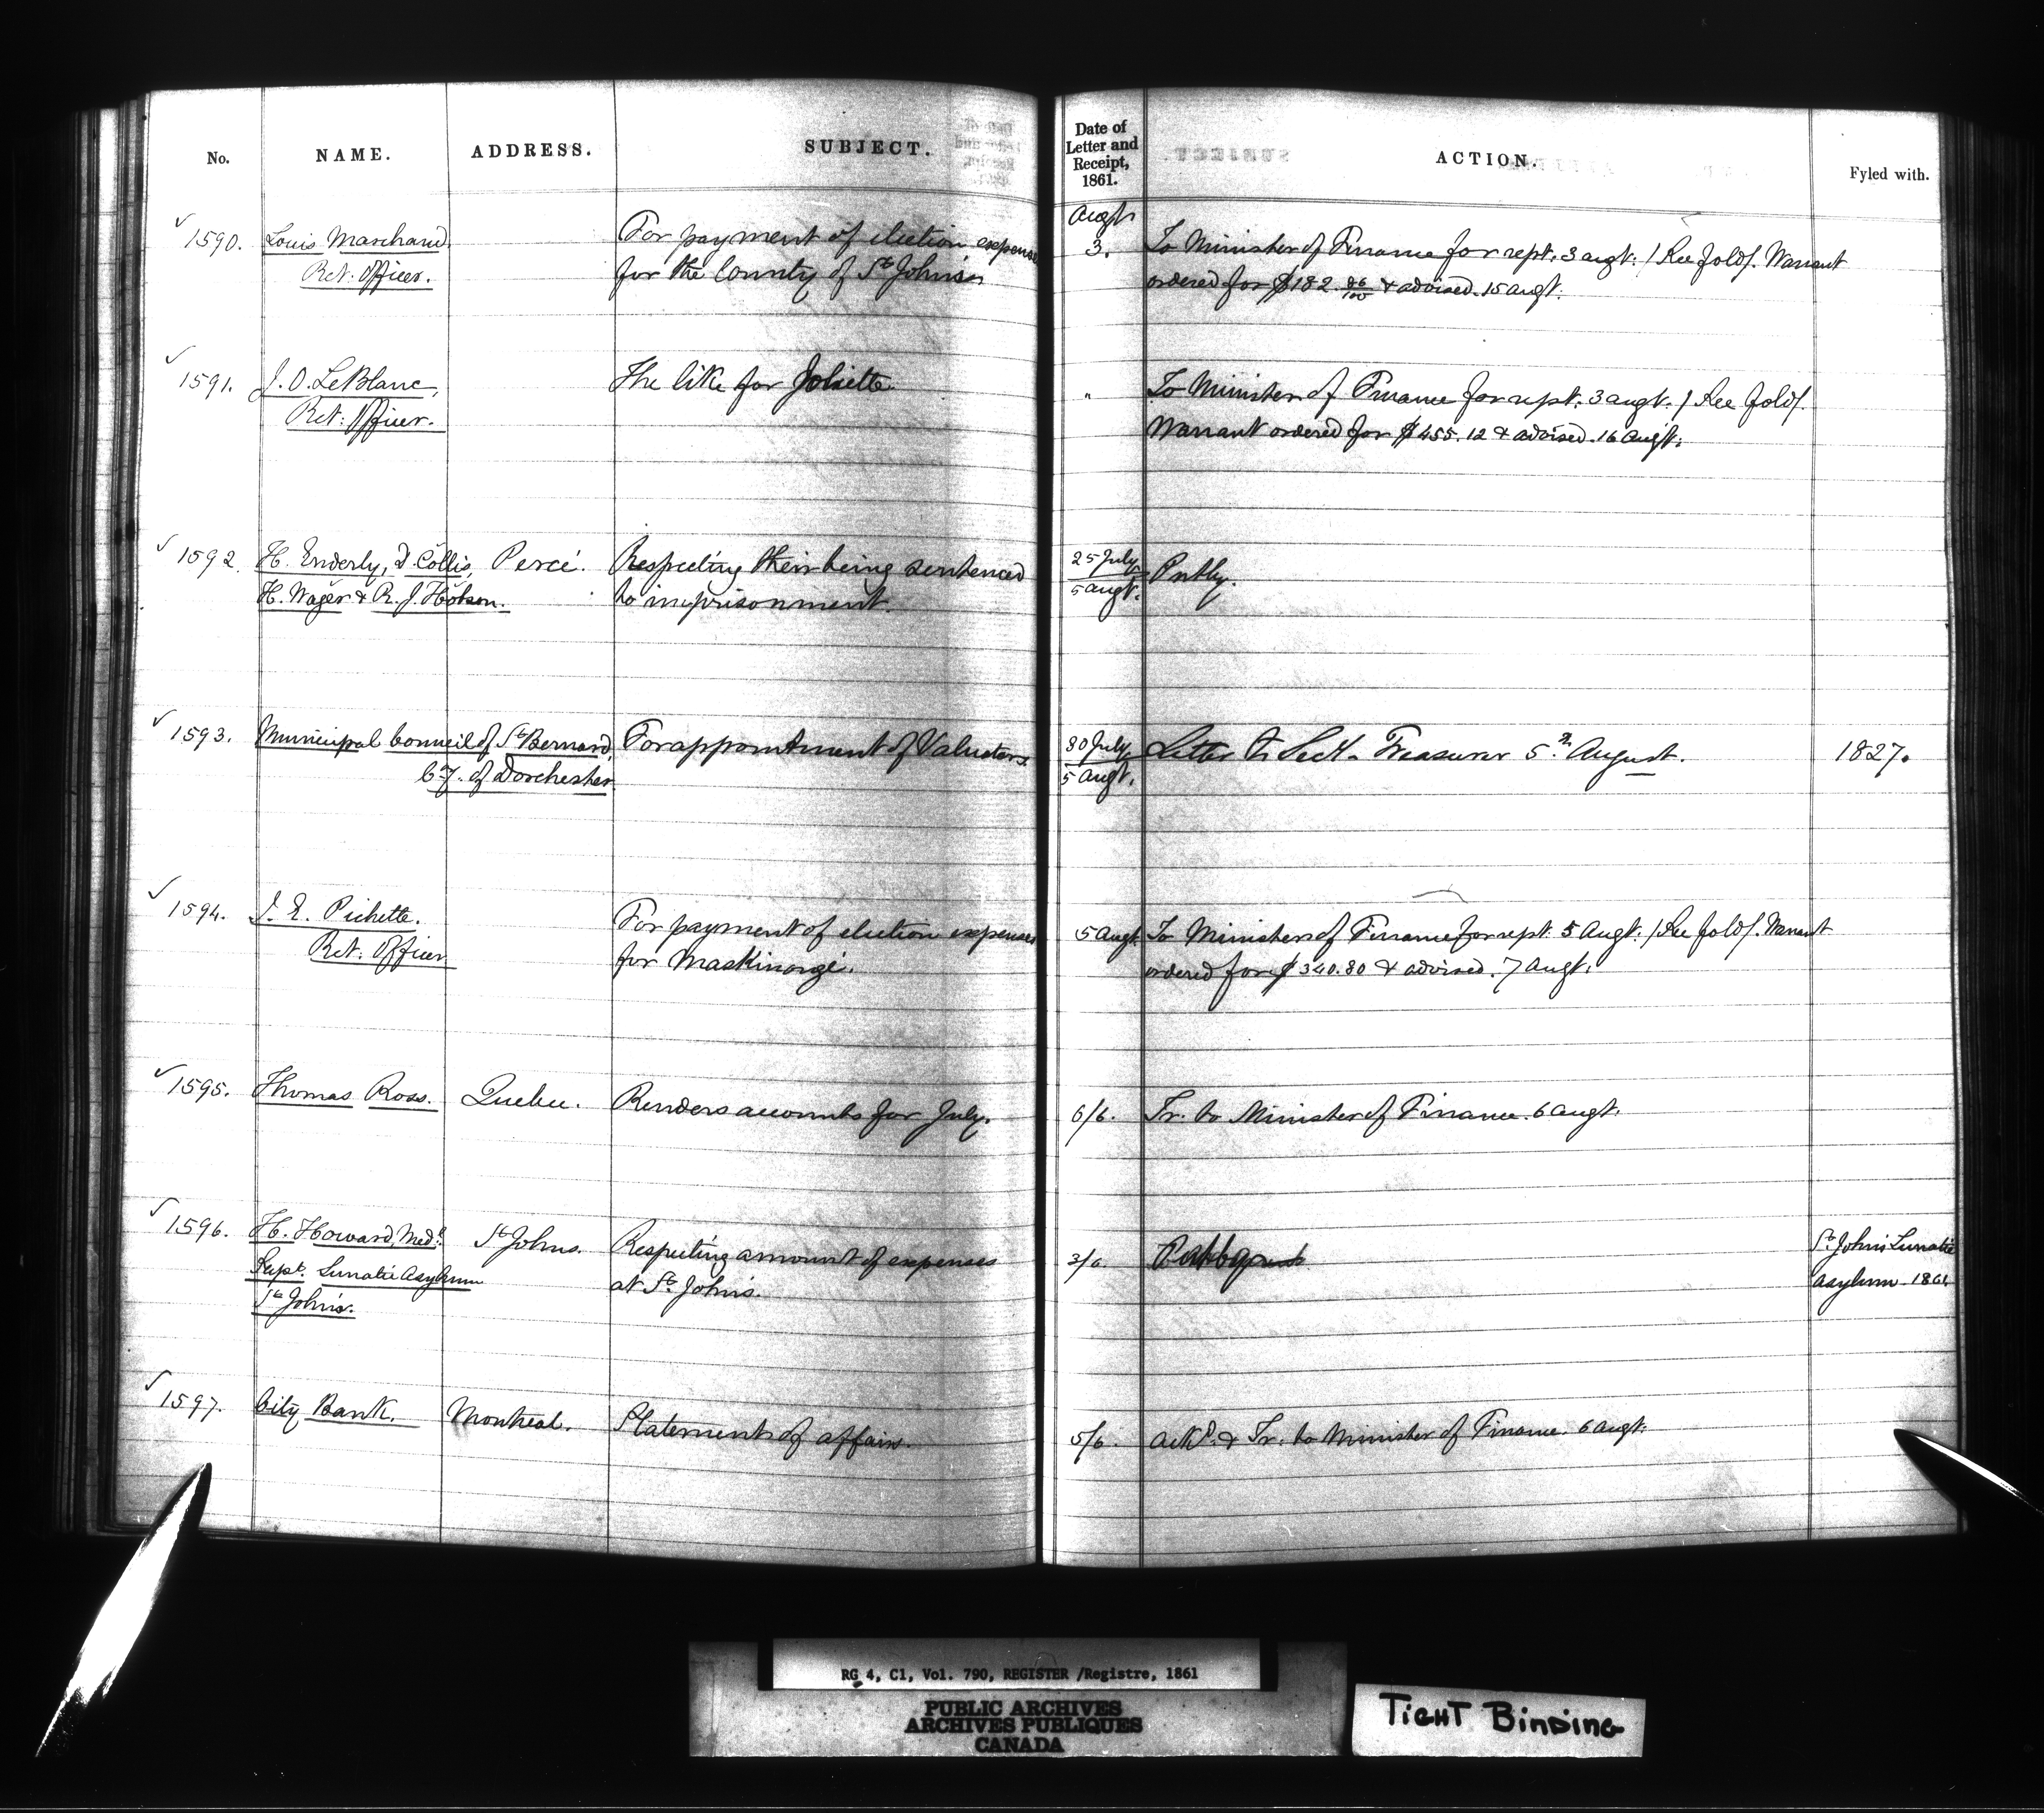 No. NAME. ADDRESS. SUBJECT. Date of Letter and Receipt, 1861. ACTION. Fyled with.
Augt
1590. Louis Marchand For payment of election expenses 3. To Minister of Finance for rept. 3 augt. / See fold/. Warrant
Ret: Officer. for the County of St John's ordered for $182. 86/100 & advised. 15 augt.
1591. J. O. LeBlanc, The like for Joliette. " To Minister of Finance for rept. 3 augt. / See fold/.
Ret: Officer. Warrant ordered for $455.12 & advised. 16 Augt.
1592. H. Enderly, D. Collis, Percé. Respecting their being sentenced 25 July Putby.
H. Wager & R. J. Hotson. to imprisonment. 5 augt.
1593. Municipal Council of St Bernard, For appointment of Valuators. 30 July Letter to Sect. Treasurer 5th August. 1827.
Cy. of Dorchester 5 augt.
1594. J. E. Pichette. For payment of election expenses 5 Augt. To Minister of Finance for rept. 5 Augt. / See fold/. Warrant
Ret: Officer for Maskinongé. ordered for $340.80 & advised. 7 augt.
1595. Thomas Ross. Quebec. Renders accounts for July. 6/6. Tr. to Minister of Finance. 6 augt.
1596. H. Howard, Medl. St Johns. Respecting amount of expenses 3/6. St. John's Lunatic
Supt. Lunatic Asylum at St. John's. asylum 1861
St John's.
1597. City Bank. Montreal. Statement of affairs. 5/6. Ackd. & Tr. to Minister of Finance. 6 augt.
RG 4, C1, Vol. 790, REGISTER /Registre, 1861
PUBLIC ARCHIVES
ARCHIVES PUBLIQUES
CANADA
TIGHT BINDING